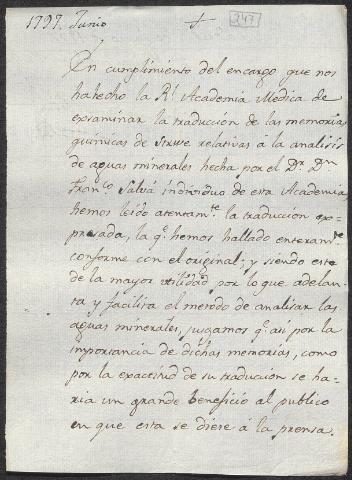 1797. Junio
247
En cumplimiento del encargo que nos
ha hecho la Rl. Academia Medica de
exsaminar la traducción de las memorias
quimicas de Struve relativas a la analisis
de aguas minerales hecha por el Dr. Dn.
Franco. Salvá individuo de esta Academia
hemos leido atentamte. la traduccion ex-
presada, la qe. hemos hallado enteramte.
conforme con el original; y siendo este
de la mayor utilidad por lo que adelan-
ta y facilita el metodo de analisar las
aguas minerales, jusgamos qe. asi por la
importancia de dichas memorias, como
por la exactitud de su traduccion se ha-
ria un grande beneficio al publico
en que esta se diese à la prensa.